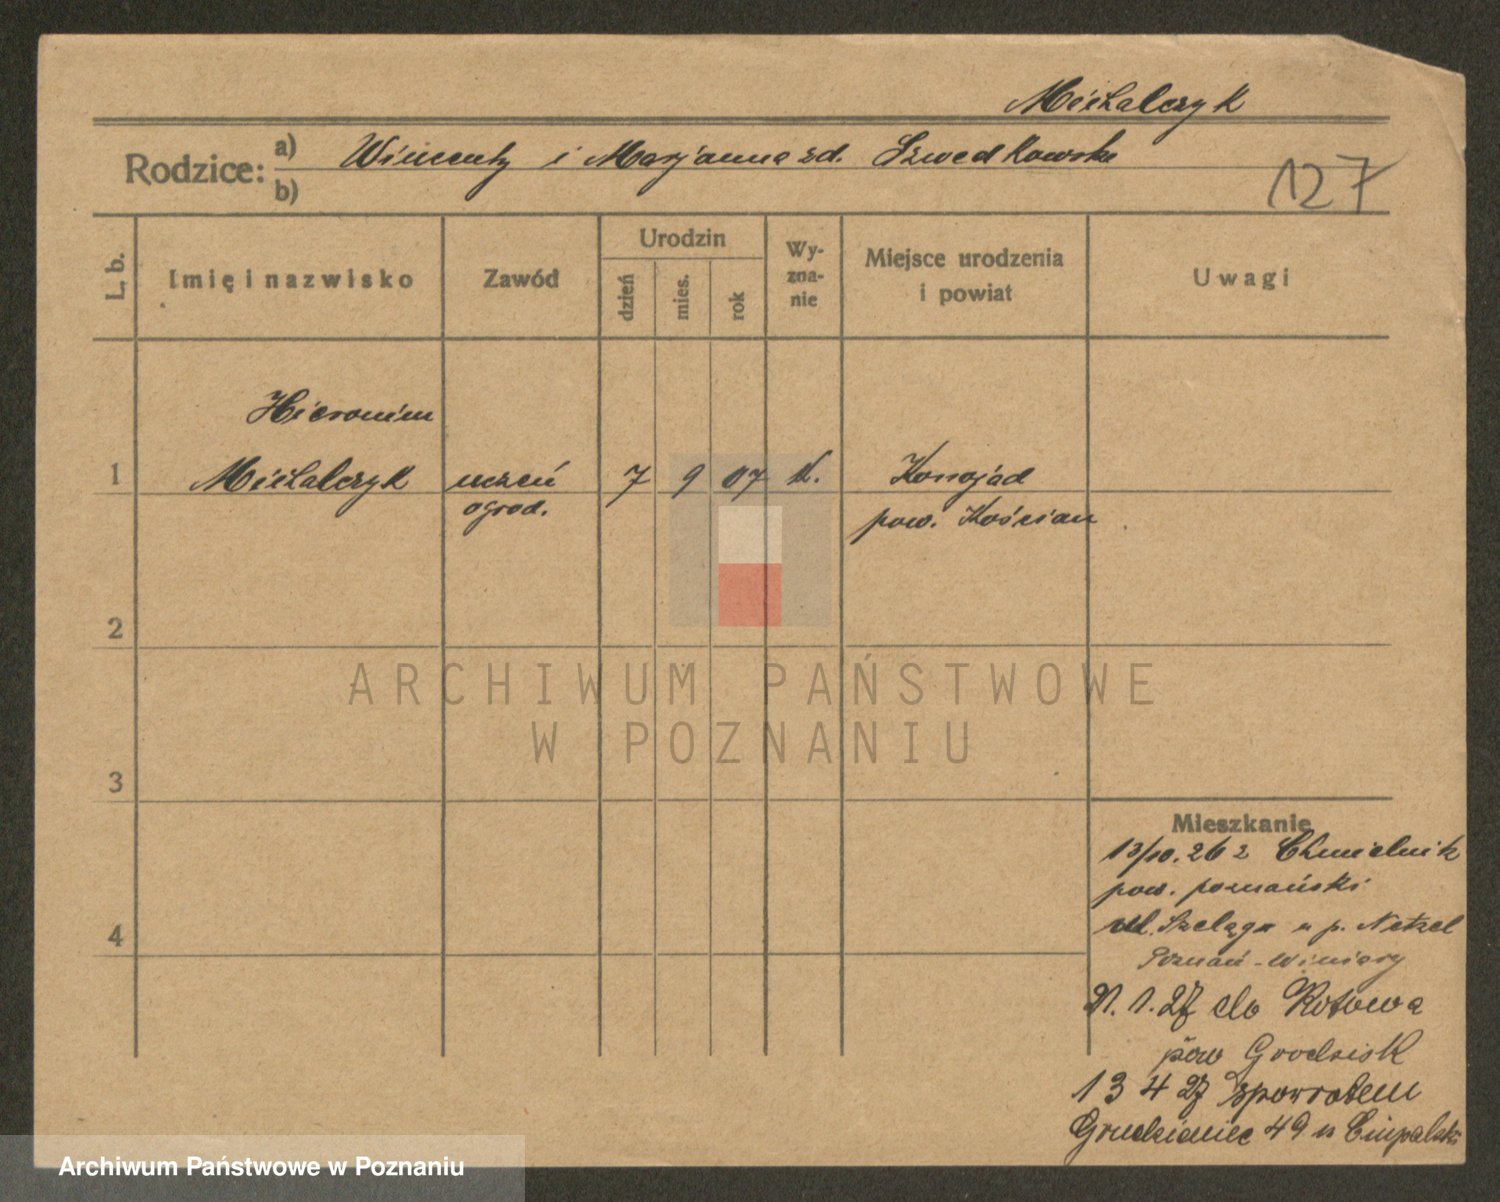 Michalczyk
Rodzice: a) Wincenty i Marjanna zd. Szwedkowska
b)
127
L. b.
Imię i nazwisko
Zawód
Urodzin
dzień
mies.
rok
Wy-
zna-
nie
Miejsce urodzenia
i powiat
Uwagi
Hieronim
1 Michalczyk uczeń 7 9 07 k. Konojad
ogrod. pow. Kościan
2
ARCHIWUM PAŃSTWOWE
W POZNANIU
3
Mieszkanie
13/10. 26 z Chmielnik
pow. poznański
ul. Szeląga u p. Netzel
4
Poznań-Winiary
21. 1. 27 do Kotowa
pow Grodzisk
13 4 27 spowrotem
Grudzieniec 49 u
Archiwum Państwowe w Poznaniu